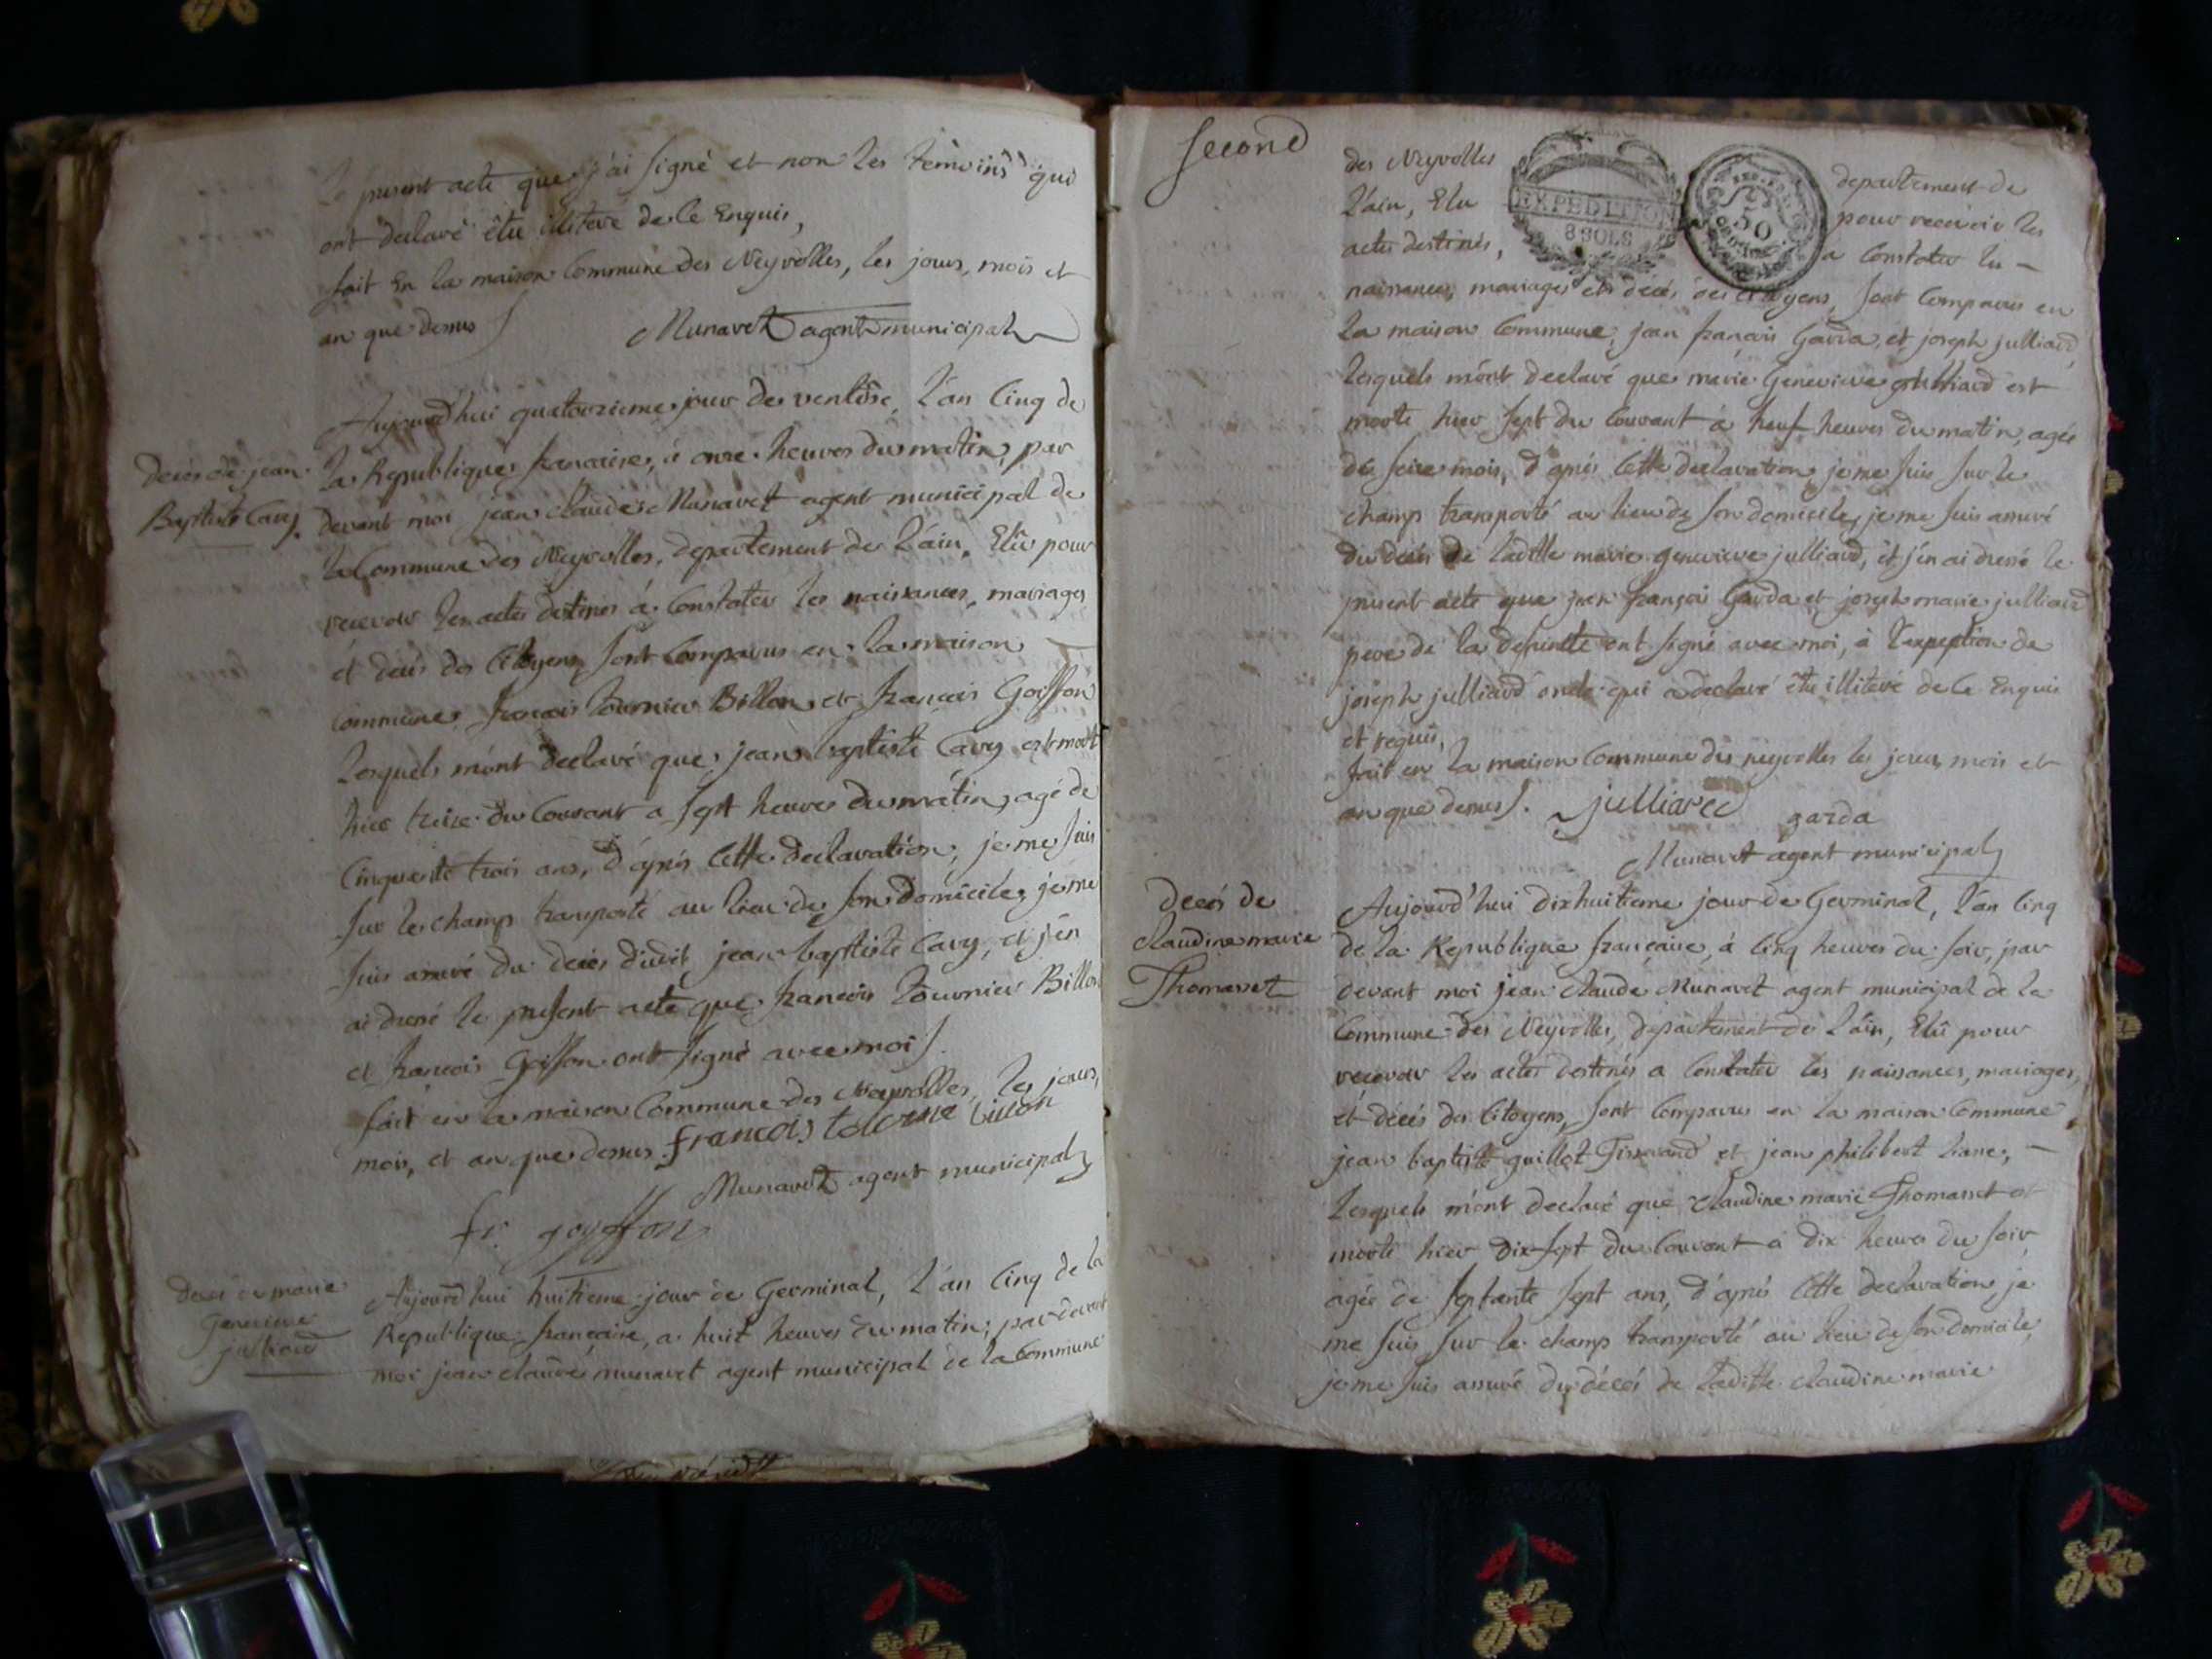 Le present acte que j'ai signé et non les temoins qui
ont declaré étre illiteré de ce Enquis,
fait En la maison Commune des Neyrolles, les jours, mois et
an que dessus
Munaret agent municipal
Decès de jean
Baptiste Cavy.
Aujourd'hui quatorzieme jour de ventôse, L'an Cinq de
La Republique francaise, à onze heures du matin, par
devant moi jean Claude Munaret agent municipal de
la Commune des Neyrolles, departement de L'ain, Elû pour
recevoir les actes destinés à Constater les naissances, mariages
et decès des Citoyens, sont Comparus en la maison
Commune, francois tournier Billon et francois Goiffon
Lesquels m'ont declaré que jean baptiste Cavy est mort
hier treize du Courant a sept heures du matin, agé de
Cinquante trois ans, d'après Cette declaration, je me suis
sur le champ transporté au lieu de son domicile, je me
suis assuré du decès dudit jean baptiste Cavy, et j'en
ai dressé le present acte que francois tournier Billon
et francois Goiffon ont signé avec moi
fait en la maison Commune des Neyrolles, les jours,
mois, et an que dessus. francois billon
Munaret agent municipal
fr. goyffon
Decès de marie
Genevieve
julliard
Aujourd'hui huitieme jour de Germinal, L'an Cinq de la
Republique française, a huit heures du matin; par devant
moi jean claude munaret agent municipal de la Commune
Second
des Neyrolles departement de
L'ain, Elu pour recevoir les
actes destinés, a Constater les
EXPEDITION
8 SOLS
50
naissances, mariages et décès des Citoyens, sont Comparus en
la maison Commune, jean françois Garda, et joseph julliard
lesquels m'ont declaré que marie Genevieve julliard est
morte hier sept du Courant à neuf heures du matin, agée
de seize mois, d'après Cette declaration, je me suis sur le
champ transporté au lieu de son domicile, je me suis assuré
du decès de laditte marie genevieve julliard, et j'en ai dressé le
present acte que jean françois Garda et joseph marie julliard
pere de la defuntte ont signé avec moi, à l'exception de
joseph julliard oncle qui a declaré étre illiteré de ce Enquis
et requis,
fait en la maison Commune des neyrolles les jour, mois et
an que dessus. julliard garda
Munaret agent municipal
Decés de
claudine marie
Thomasset
Aujourd'hui dixhuitieme jour de Germinal, L'an Cinq
de la Republique française, à Cinq heures du soir, par
devant moi jean Claude Munaret agent municipal de la
Commune des Neyrolles, departement de L'ain, Elû pour
recevoir les actes destinés a Constater les naissances, mariages,
et décés des Citoyens, sont Comparus en la maison Commune
jean baptiste guillot et jean philibert
Lesquels m'ont declaré que claudine marie Thomasset est
morte hier dix sept du Courant à dix heures du soir
agée de septante sept ans, d'après Cette declaration, je
me suis sur le champ transporté au lieu de son domicile,
je me suis assuré du décès de laditte claudine marie